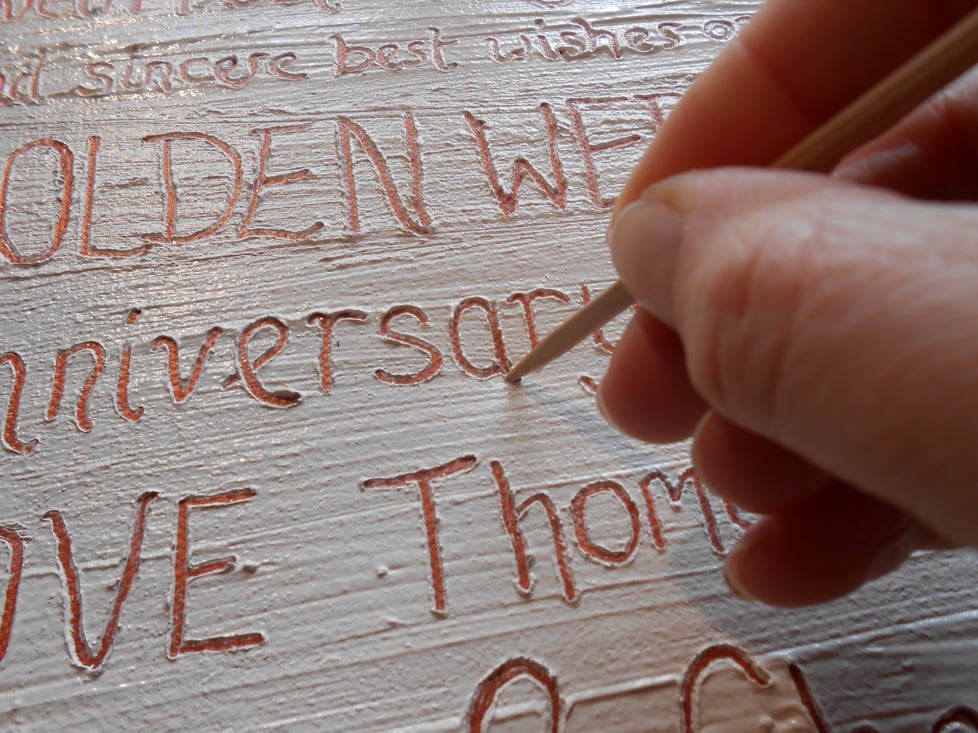 nd sincere best wishes o
OLDEN WE
nniversary
OVE Thom
&